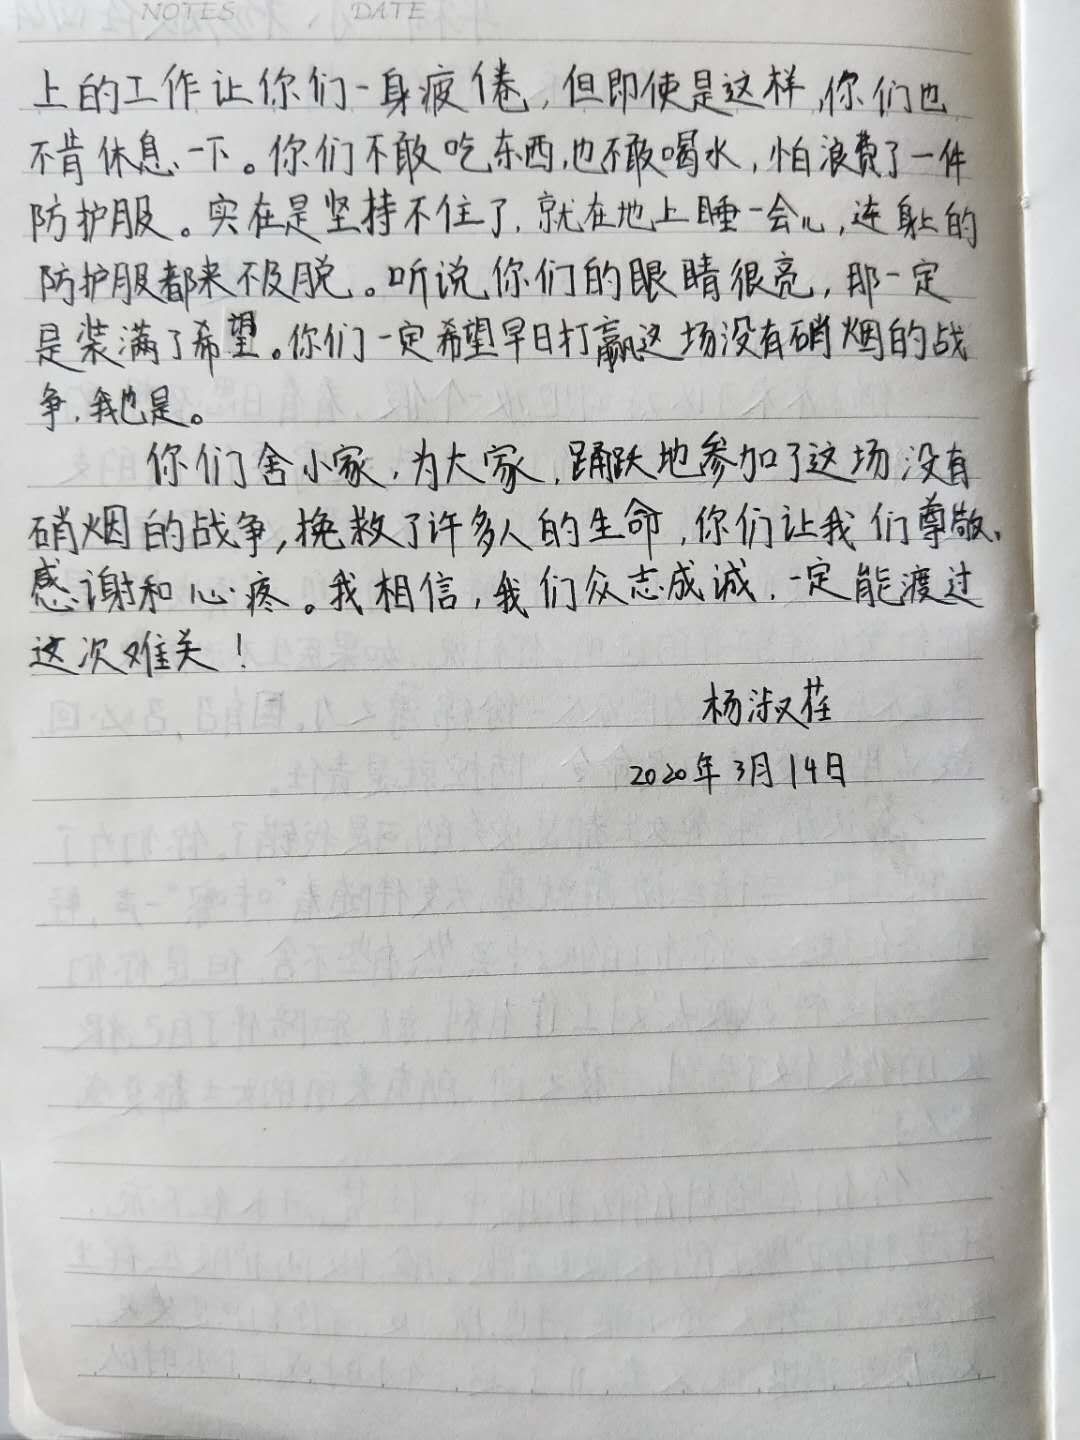 NOTES DATE
上的工作让你们一身疲倦，但即使是这样，你们也
不肯休息一下。你们不敢吃东西，也不敢喝水，怕浪费了一件
防护服。实在是坚持不住了，就在地上睡一会儿，连身上的
防护服都来不及脱。听说你们的眼睛很亮，那一定
是装满了希望。你们一定希望早日打赢这场没有硝烟的战
争，我也是。
你们舍小家，为大家，踊跃地参加了这场没有
硝烟的战争，挽救了许多人的生命，你们让我们尊敬、
感谢和心疼。我相信，我们众志成诚，一定能渡过
这次难关！
杨淑荏
2020年3月14日